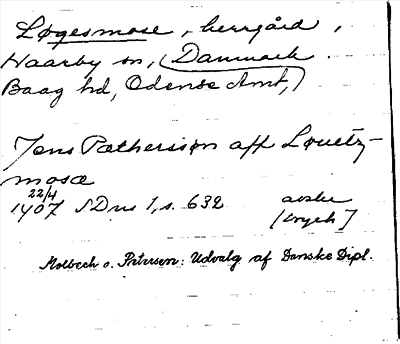 Løgesmose, herrgård,
Haarby sn, (Danmark.
Baag hd, Odense Amt,)
Jens Pætherssøn aff Louetz-
mosæ
22/4
1407 SDns 1, s. 632 avskr
[tryck]
Molbech o. Petersen: Udvalg af Danske Dipl.